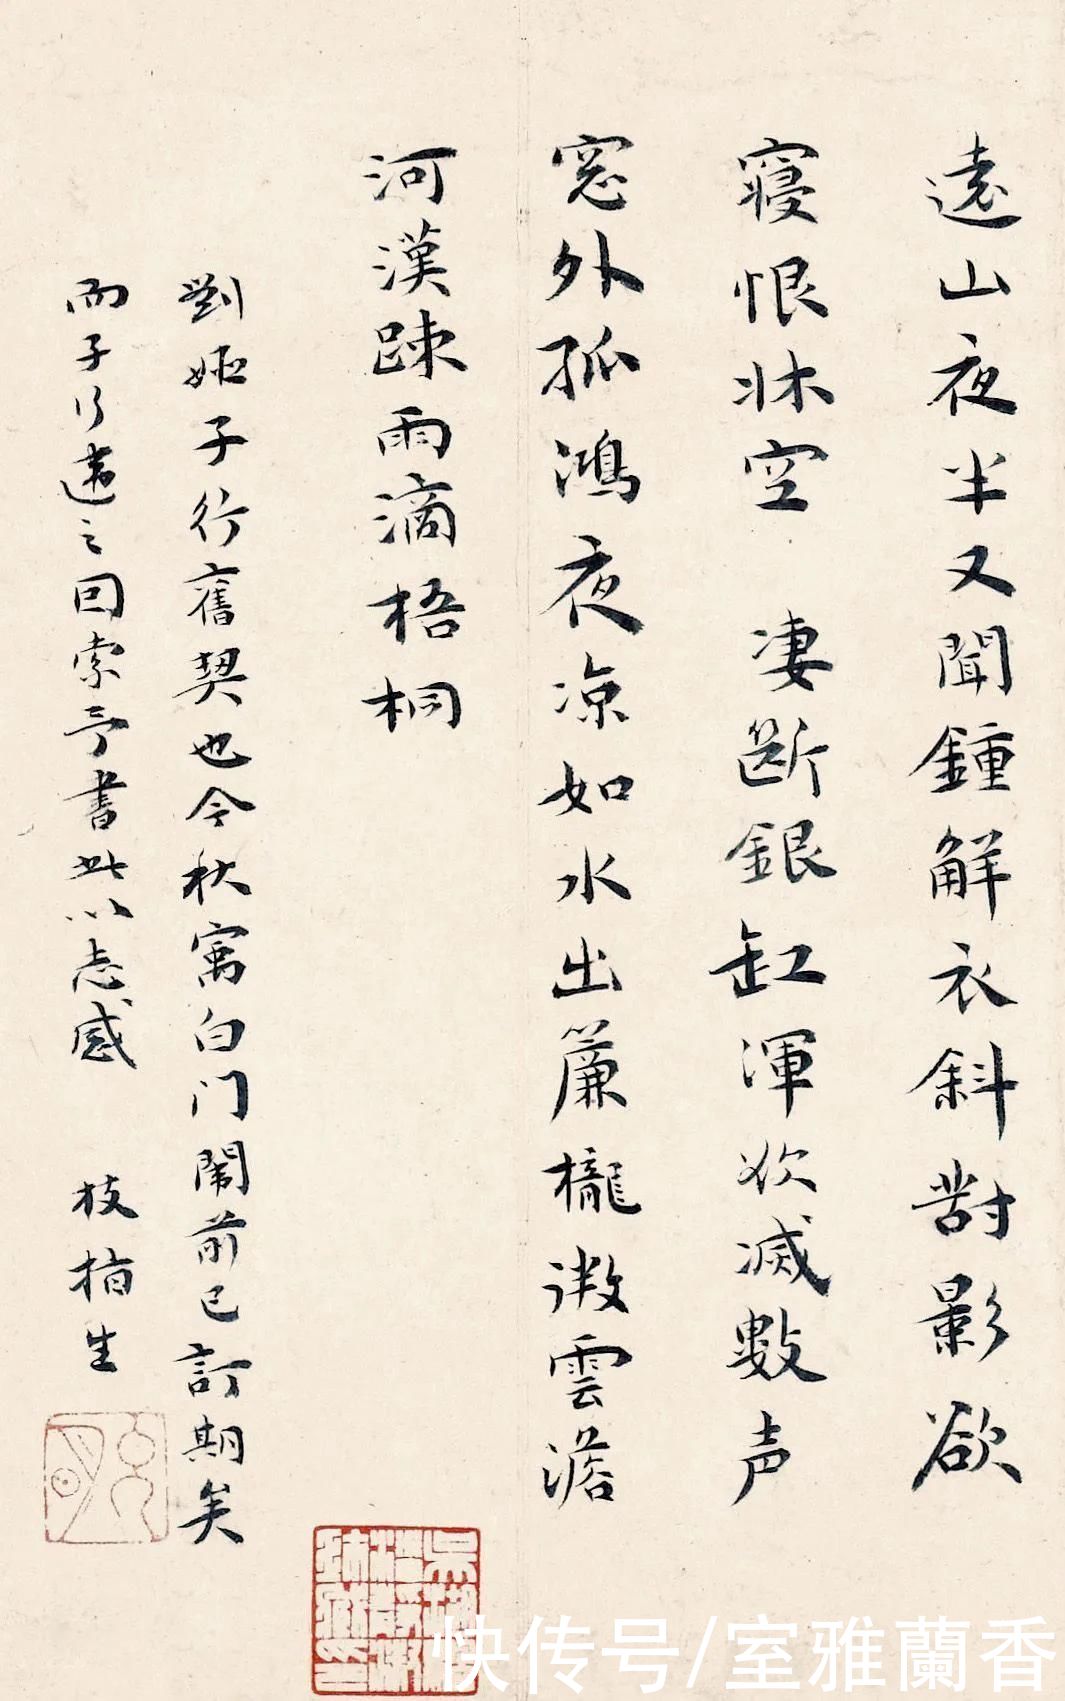 遠山夜半又聞鍾解衣斜對影欲
寝恨牀空 淒斷銀缸渾欲滅數声
窓外孤鴻夜凉如水出簾櫳微雲澹
河漢踈雨滴梧桐
劉姬子行舊契也今秋寓白门闈前已訂期矣
而子行違之回索予書此以志感 枝指生
快传号/室雅蘭香